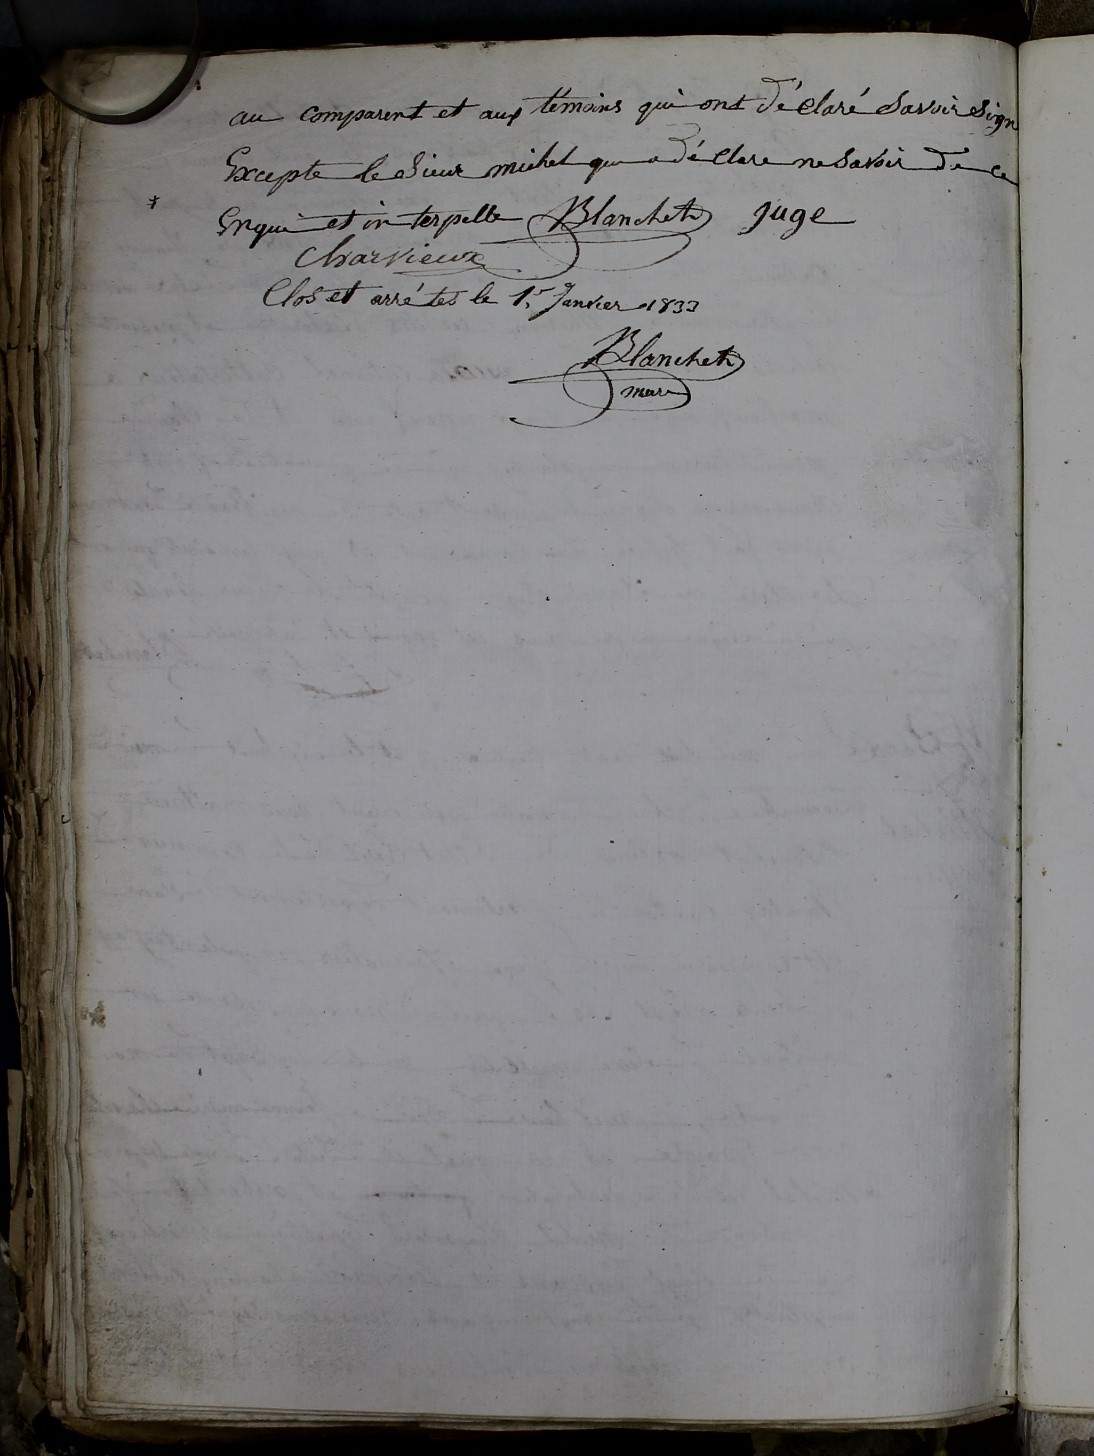 au comparent et aux témoins qui ont déclaré Savoir Sign
Excepte le Sieur michel qui a déclare ne Savoir de ce
Enqui et interpelle Blancheth Juge
Charvieux
Clos et arrétes le 1.er Janvier 1833
Blancheth
maire